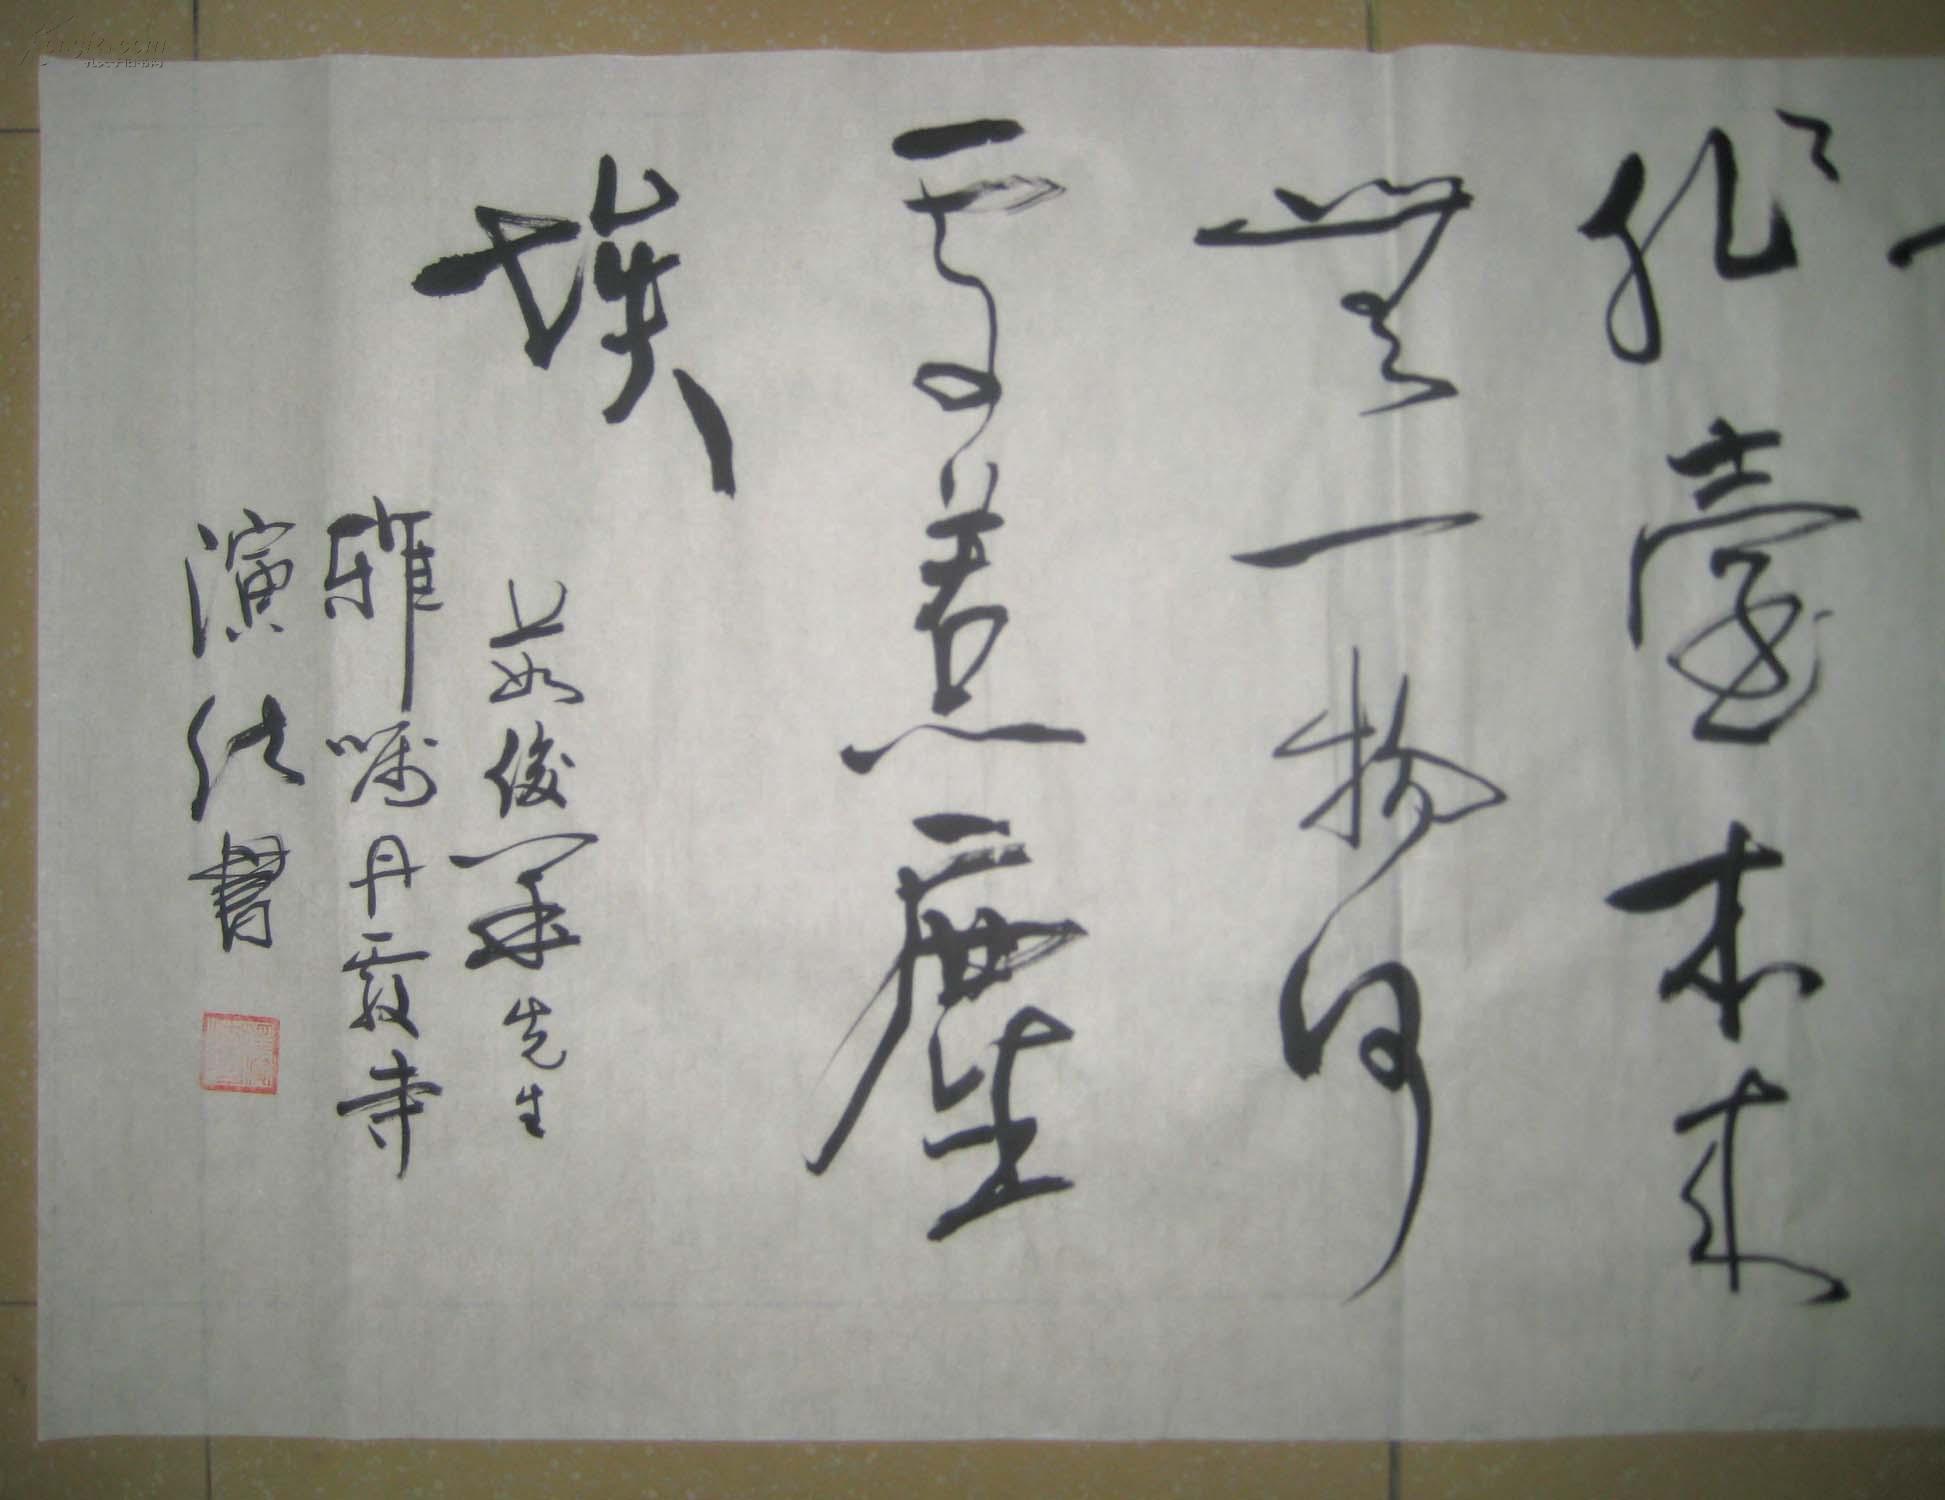 非臺本来
無一物何
處惹塵
埃
茹俊軍先生
雅嘱丹霞寺
演法書